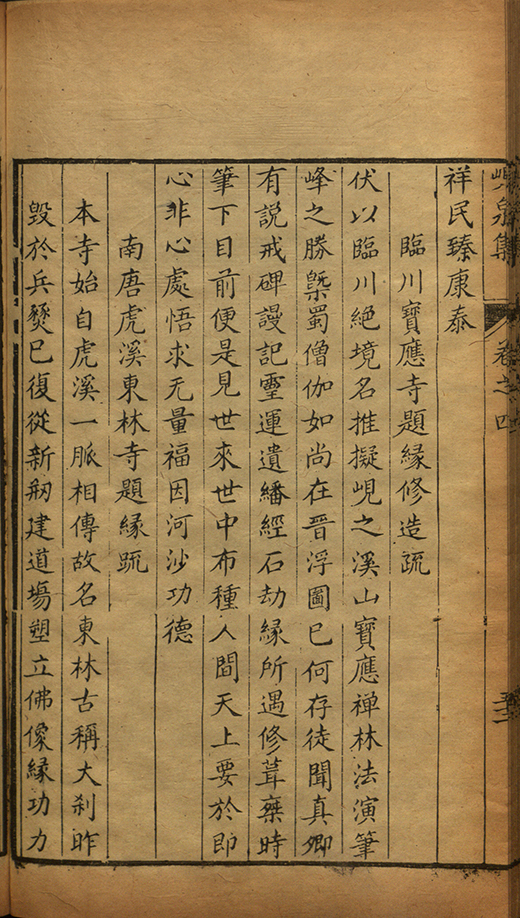 峴泉集 卷之四
祥民臻康泰
臨川寶應寺題縁修造疏
伏以臨川絶境名推擬峴之溪山寶應禅林法演筆
峰之勝槩蜀僧伽如尚在晋浮圖已何存徒聞真卿
有説戒碑謾記霊運遺繙經石劫縁所遇修葺棄時
筆下目前便是見世來世中布種人間天上要於即
心非心處悟求无量福因河沙功德
南唐虎溪東林寺題縁䟽
本寺始自虎溪一脈相傳故名東林古稱大刹昨
毀於兵燹已復從新剏建道塲塑立佛像縁功力